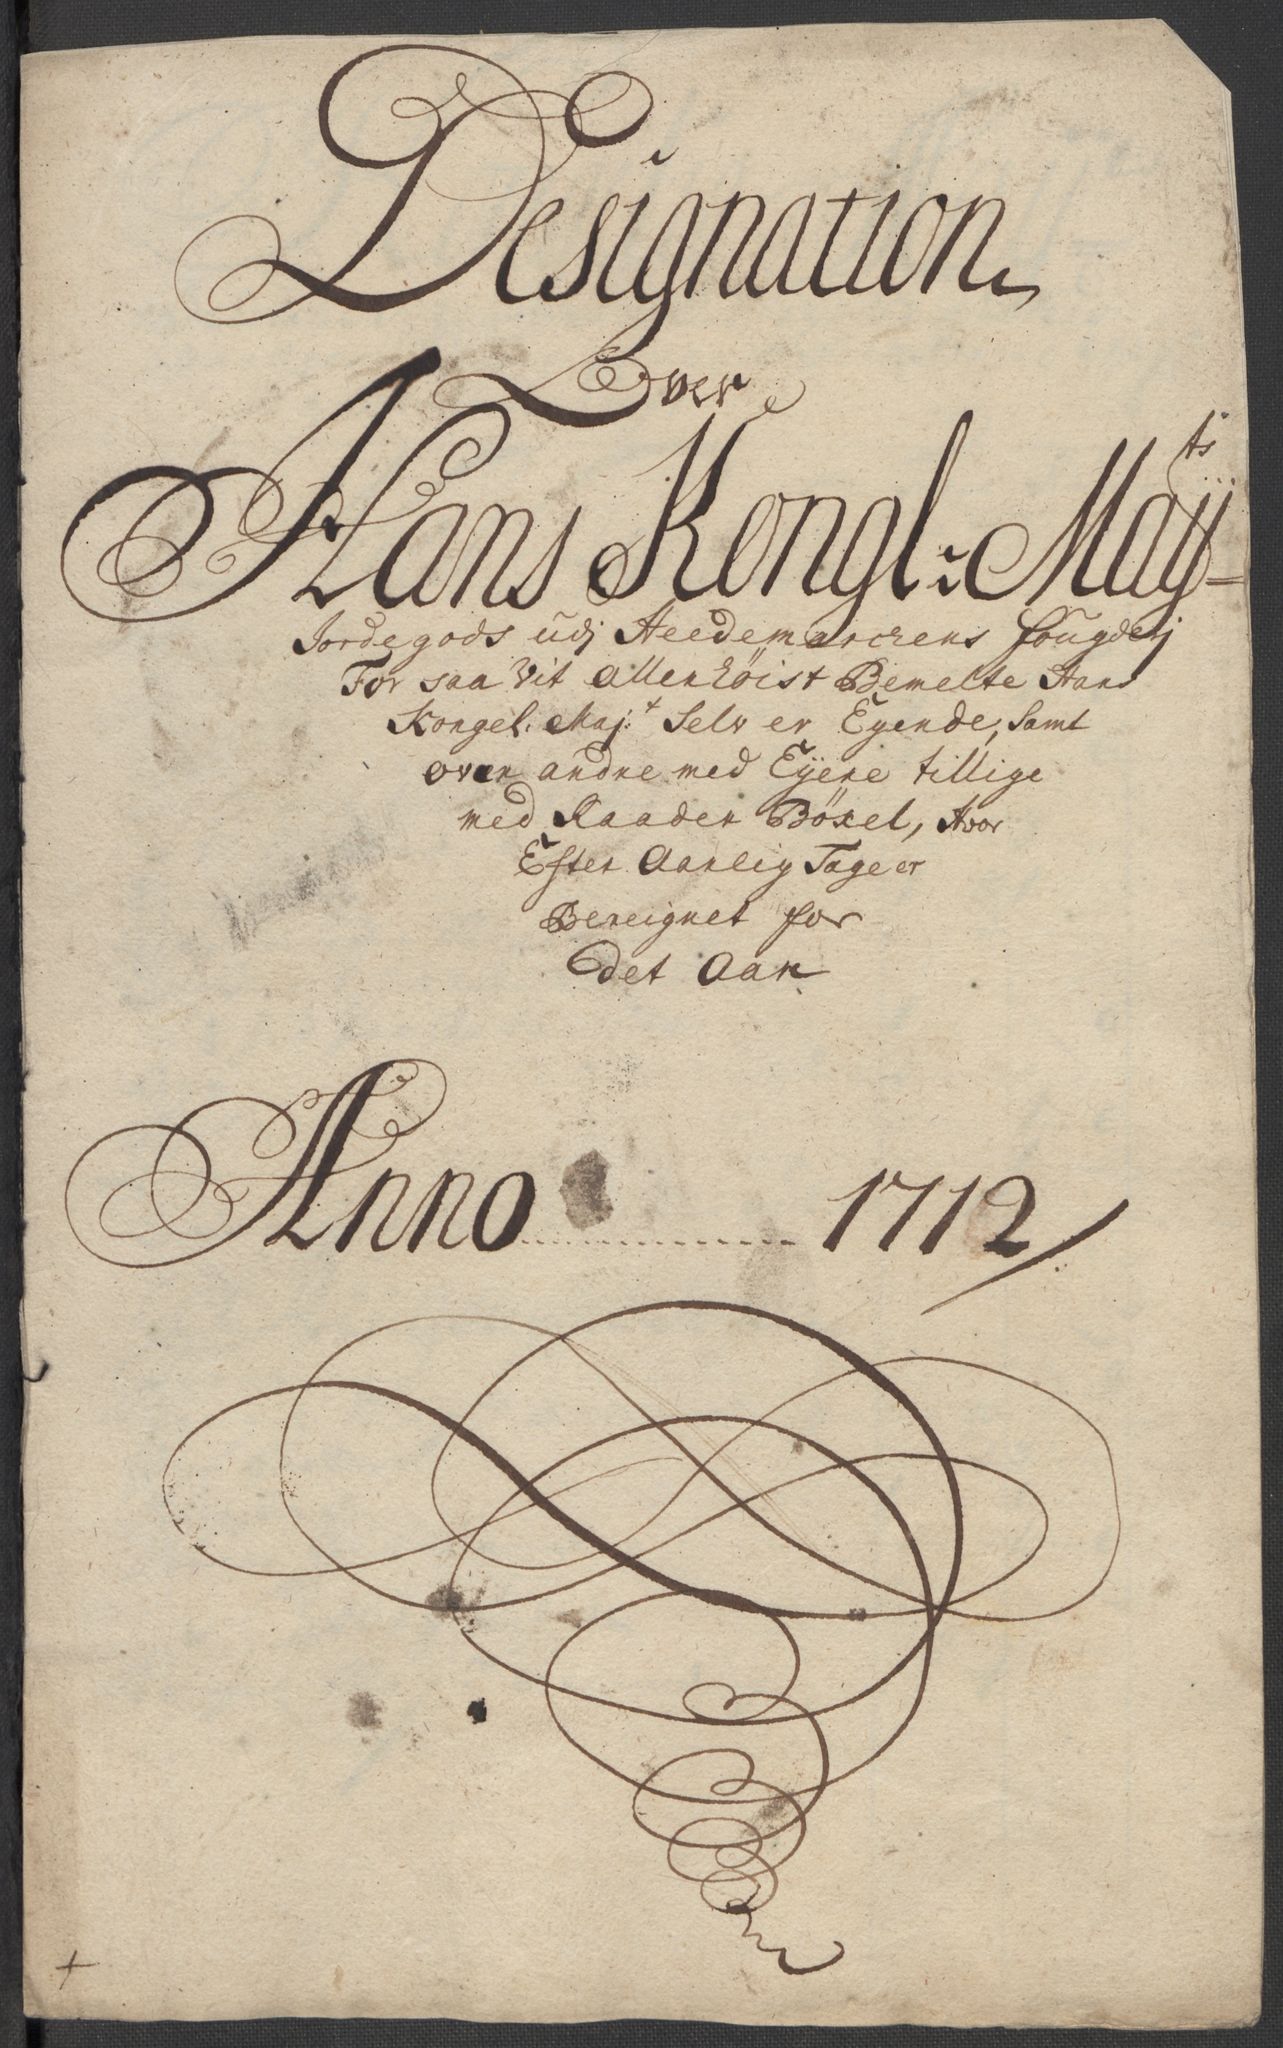 Designation
Over
Hans Kongl: Mayts
Jordegods udj Heedemarckens fougderj
For saa vit allerhöist Bemelte Hans
Kongel. Maj:t Selv er Eyende, Samt
over andre med Eyere tillige
med Raader Böxel, Hvor
Efter Aarlig Tage er
Bereignet for
det Aar
Anno 1712